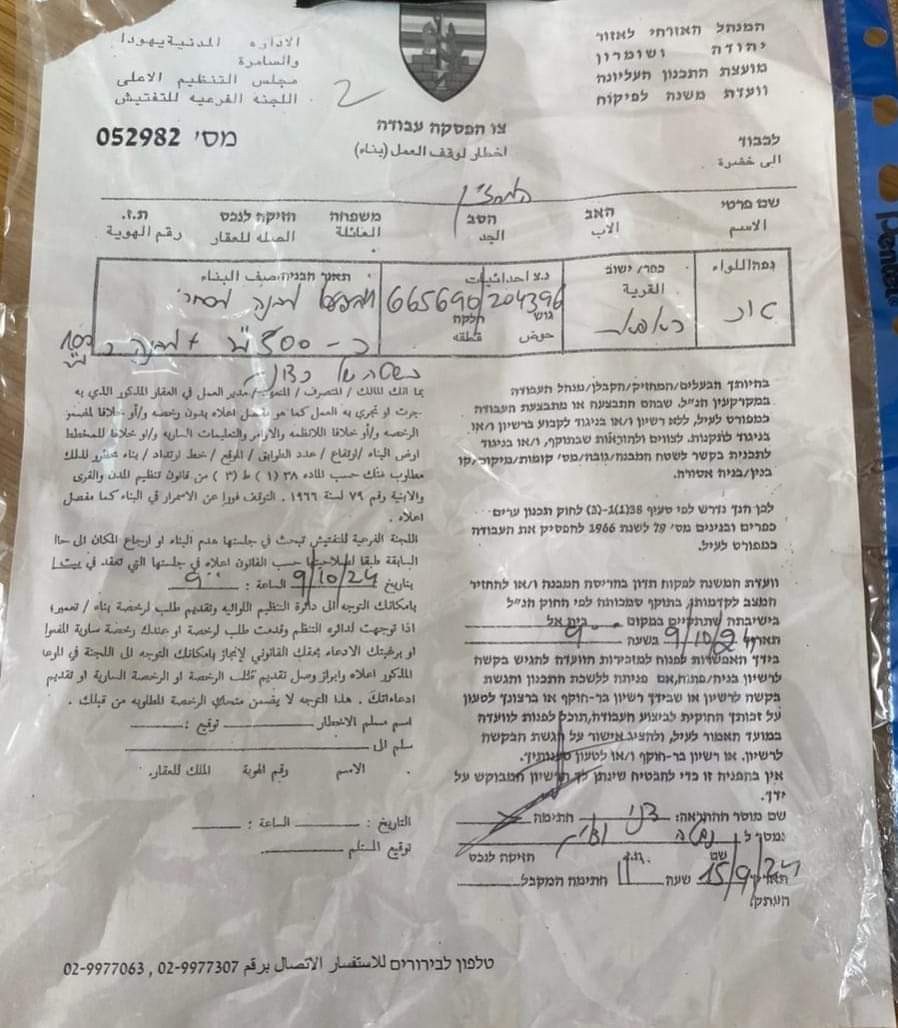 המנהל האזרחי לאזור
יהודה ושומרון
מועצת התכנון העליונה
וועדת משנה לפיקוח
الاداره المدنية يهودا
والسامرة
مجلس التنظيم الاعلى
اللجنه الفرعيه للتفتيش
2
צו הפסקה עבודה
اخطار لوقف العمل (بناء)
מס' 052982
לכבוד
الى حضرة
המחזיק
שם פרטי האב הסב משפחה חזיקה לנכס ת.ז.
الاسم الاب الجد العائلة الصله للعقار رقم الهوية
נפה اللواء כפר/ישוב القرية נ.צ احداثيات תאור הבניה وصف البناء
665690/204396
גוש חלקה
حوض قطعه
בהיותך הבעלים/המחזיק/הקבלן/מנהל העבודה
במקרקעין הנ"ל, שבהם התבצעה או מתבצעת העבודה
כמפורט לעיל, ללא רשיון ו/או בניגוד לקבוע ברשיון ו/או
בניגוד לתקנות, לצווים ולהוראות שבתוקף, ו/או בניגוד
לתכנית בקשר לשטח המבנה/גובה/מס' קומות/מיקום/קו
בנין/בניה אסורה.
לכן הנך נדרש לפי סעיף 38(1)-(ג) לחוק תכנון ערים
כפרים ובנינים מס' 79 לשנת 1966 להפסיק את העבודה
כמפורט לעיל.
וועדת המשנה לפקוח תדון בהריסת המבנה ו/או להחזיר
המצב לקדמותו, בתוקף סמכותה לפי החוק הנ"ל
בישיבתה שתתקיים במקום בית אל
תאריך 9/10/24 בשעה 9
בידך האפשרות לפנות למזכירות הוועדה להגיש בקשה
לרשיון בניה/פתוח, אם פניתה ללשכת התכנון והגשת
בקשה לרשיון או שבידך רשיון בר-תוקף או ברצונך לטעון
על זכותך החוקית לביצוע העבודה, תוכל לפנות לוועדה
במועד האמור לעיל, ולהציג אישור על הגשת הבקשה
לרשיון, או רשיון בר-תוקף ו/או לטעון טענותיך.
אין בהפניה זו כדי להבטיח שינתן לך הרשיון המבוקש על
ידך.
שם מוסר ההתראה: חתימה
נמסר ל
שם ת.ז. חזיקה לנכס
תאריך 15/9/24 שעה 11 חתימת המקבל
העתק:
بما انك المالك / المتصرف / المتعهد / مدير العمل في العقار المذكور الذي به
جرت او تجري به العمل كما هو مفصل اعلاه بدون رخصه و/أو خلافا لمضمون
الرخصه و/أو خلافا اللانظمه والاوامر والتعليمات السارية و/او خلافا للمخطط
اوض البناء / ارتفاع / عدد الطوابق / الموقع / خط ارتداد / بناء محظور لذلك
مطلوب منك حسب الماده ٣٨ (١) ط (٣) من قانون تنظيم المدن والقرى
والابنية رقم ٧٩ لسنة ١٩٦٦. التوقف فورا عن الاسمرار في البناء كما مفصل
اعلاه.
اللجنة الفرعية للتفتيش تبحث في جلستها هدم البناء او ارجاع المكان الى حالته
السابقة طبقا لصلاحيتها حسب القانون اعلاه في جلستها التي تعقد في
بتاريخ 9/10/24 الساعة: 9
بامكانك التوجه الى دائرة التنظيم اللوائيه وتقديم طلب لرخصة بناء / تعمير؛
اذا توجهت لدائره التنظم وقدمت طلب لرخصة او عندك رخصة سارية المفعول
او برغبتك الادعاء بحقك القانوني لإنجاز بامكانك التوجه الى اللجنة في الموعد
المذكور اعلاه وابراز وصل تقديم طلب الرخصة او الرخصة السارية او تقديم
ادعاءاتك. هذا التوجه لا يضمن منحك الرخصة المطلوبه من قبلك.
اسم مسلم الاخطار توقيع:
سلم الى
الاسم رقم الهوية الملك للعقار.
التاريخ: الساعة:
توقيع المستلم
טלפון לבירורים للاستفسار الاتصال برقم 02-9977307 , 02-9977063